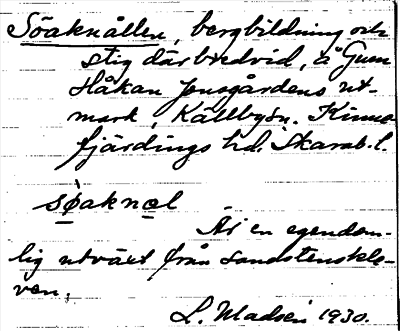 Söaknållen, bergbildning och
stig därbredvid, å Gum
Håkan Jonsgårdens ut-
mark, Källbysn. Kinne-
fjärdings hd. Skarab.l.
söaknål
Är en egendom-
lig utväxt från sandstenskle-
ven.
L. Madsén 1930.